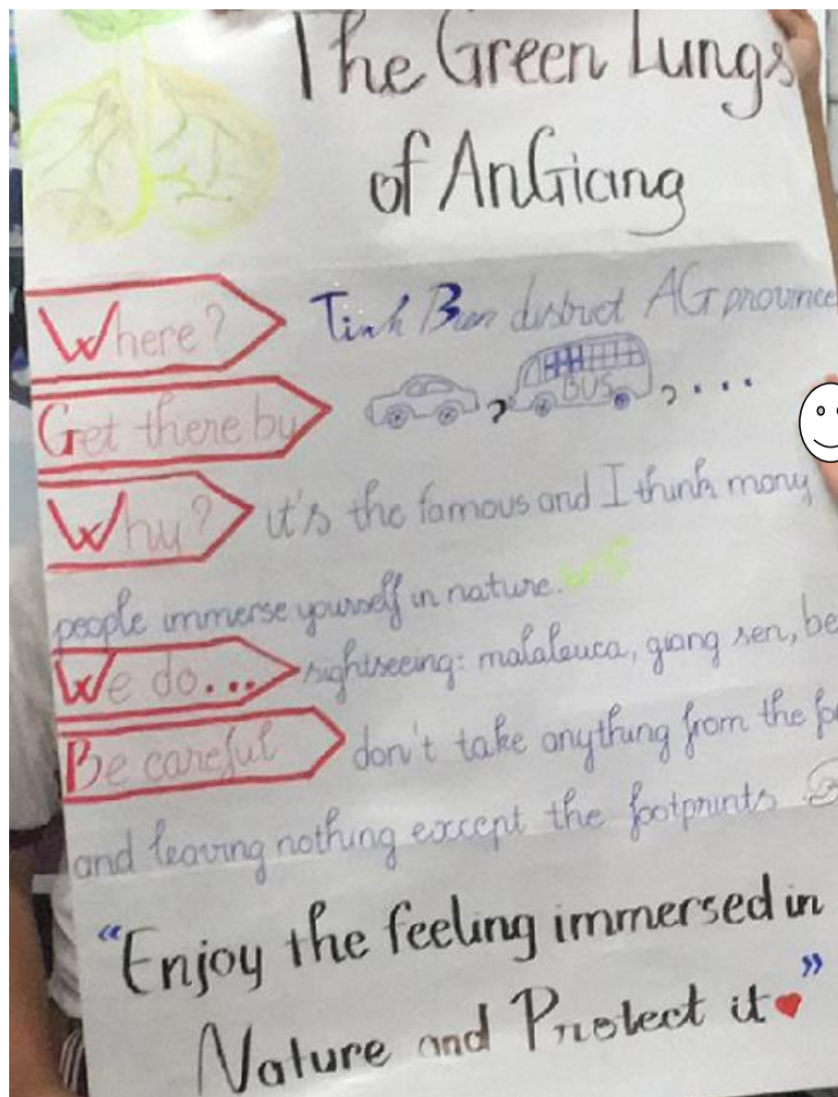 The Green Lungs
of AnGiang
Where? Tinh Bien district AG province
Get there by BUS, ...
Why? it's the famous and I think many
people immerse yourself in nature.
We do... sightseeing: malaleuca, giang sen,
Be careful don't take anything from the
and leaving nothing except the footprints
“Enjoy the feeling immersed in
Nature and Protect it”